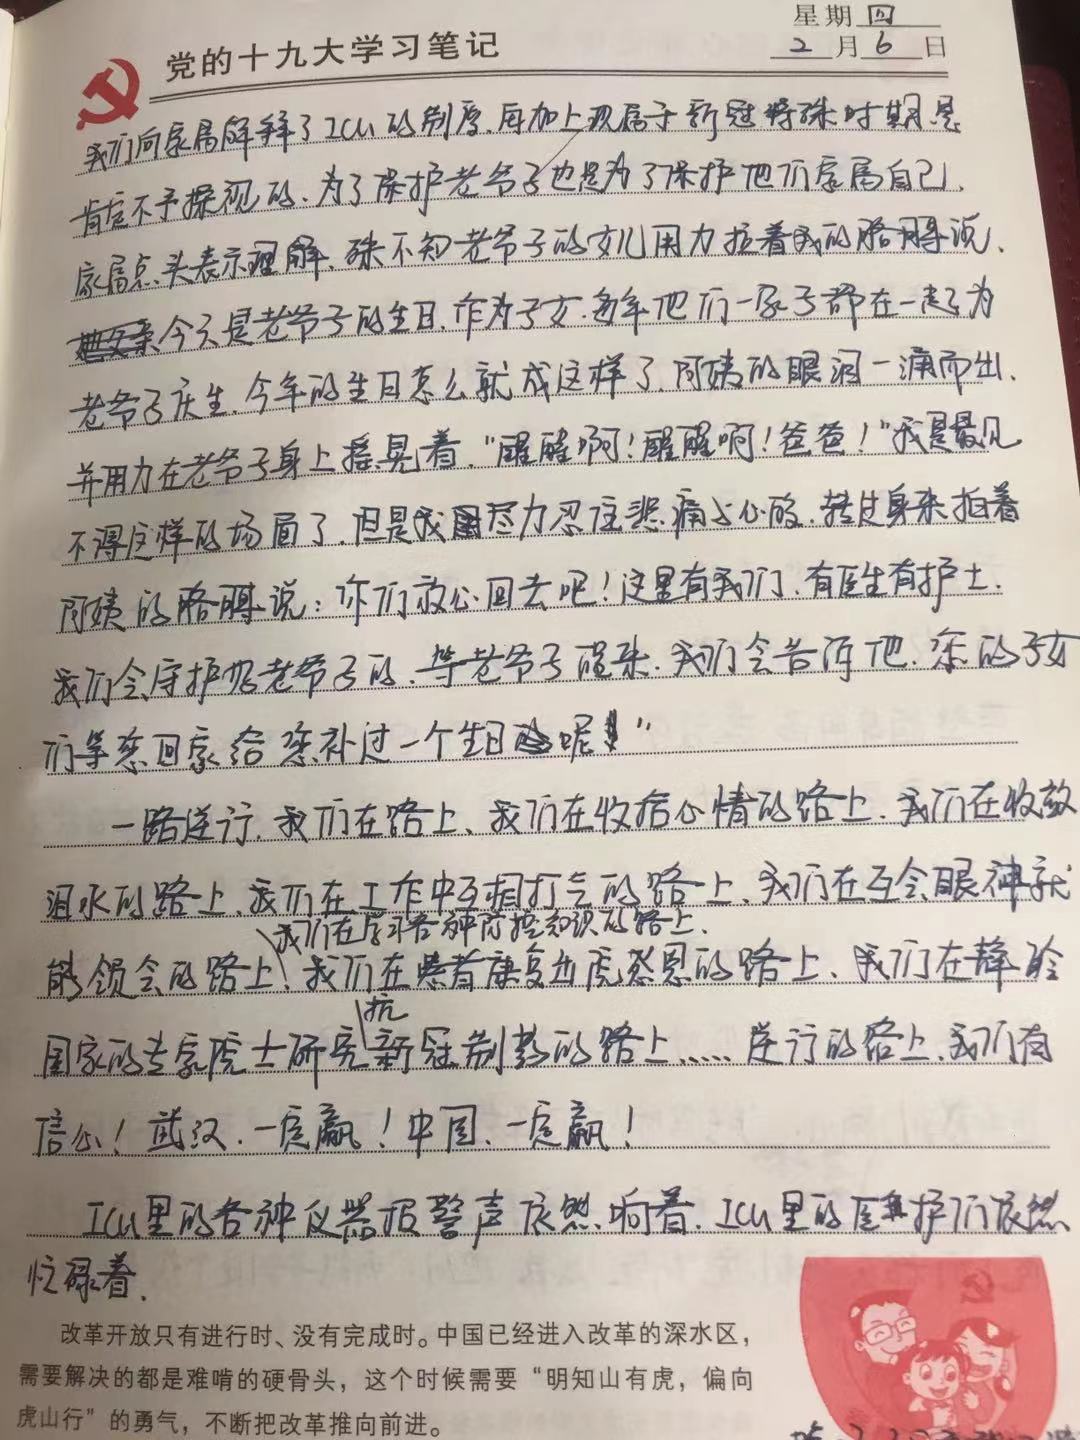 星期 四
党的十九大学习笔记 2月6日
我们向家属解释了ICU的制度.再加上现属于新冠特殊时期是
肯定不予探视的、为了保护老爷子也是为了保护他们家属自己.
家属点头表示理解、殊不知老爷子的女儿用力拉着我的胳膊说.
今天是老爷子的生日.作为子女.每年他们一家子都在一起为
老爷子庆生.今年的生日怎么就成这样了.阿姨的眼泪一涌而出.
并用力在老爷子身上摇晃着."醒醒啊!醒醒啊!爸爸!"我是最见
不得这样的场面了.但是我尽力忍住悲痛之心的.转过身来拍着
阿姨的胳膊说:你们放心回去吧!这里有我们、有医生有护士.
我们会守护好老爷子的.等老爷子醒来.我们会告诉他.您的子女
们等您回家给您补过一个生日呢"
一路逆行.我们在路上、我们在收拾心情的路上.我们在收敛
泪水的路上、我们在工作中互相打气的路上、我们在互会眼神就
我们在学习各种防控知识的路上.
能领会的路上、我们在患者康复出院感恩的路上、我们在聆听
抗
国家的专家院士研究新冠制药的路上......逆行的路上、我们有
信心!武汉、一定赢!中国、一定赢!
ICU里的各种仪器报警声依然响着.ICU里的医护们依然
忙碌着.
改革开放只有进行时、没有完成时。中国已经进入改革的深水区，
需要解决的都是难啃的硬骨头，这个时候需要“明知山有虎，偏向
虎山行”的勇气，不断把改革推向前进。